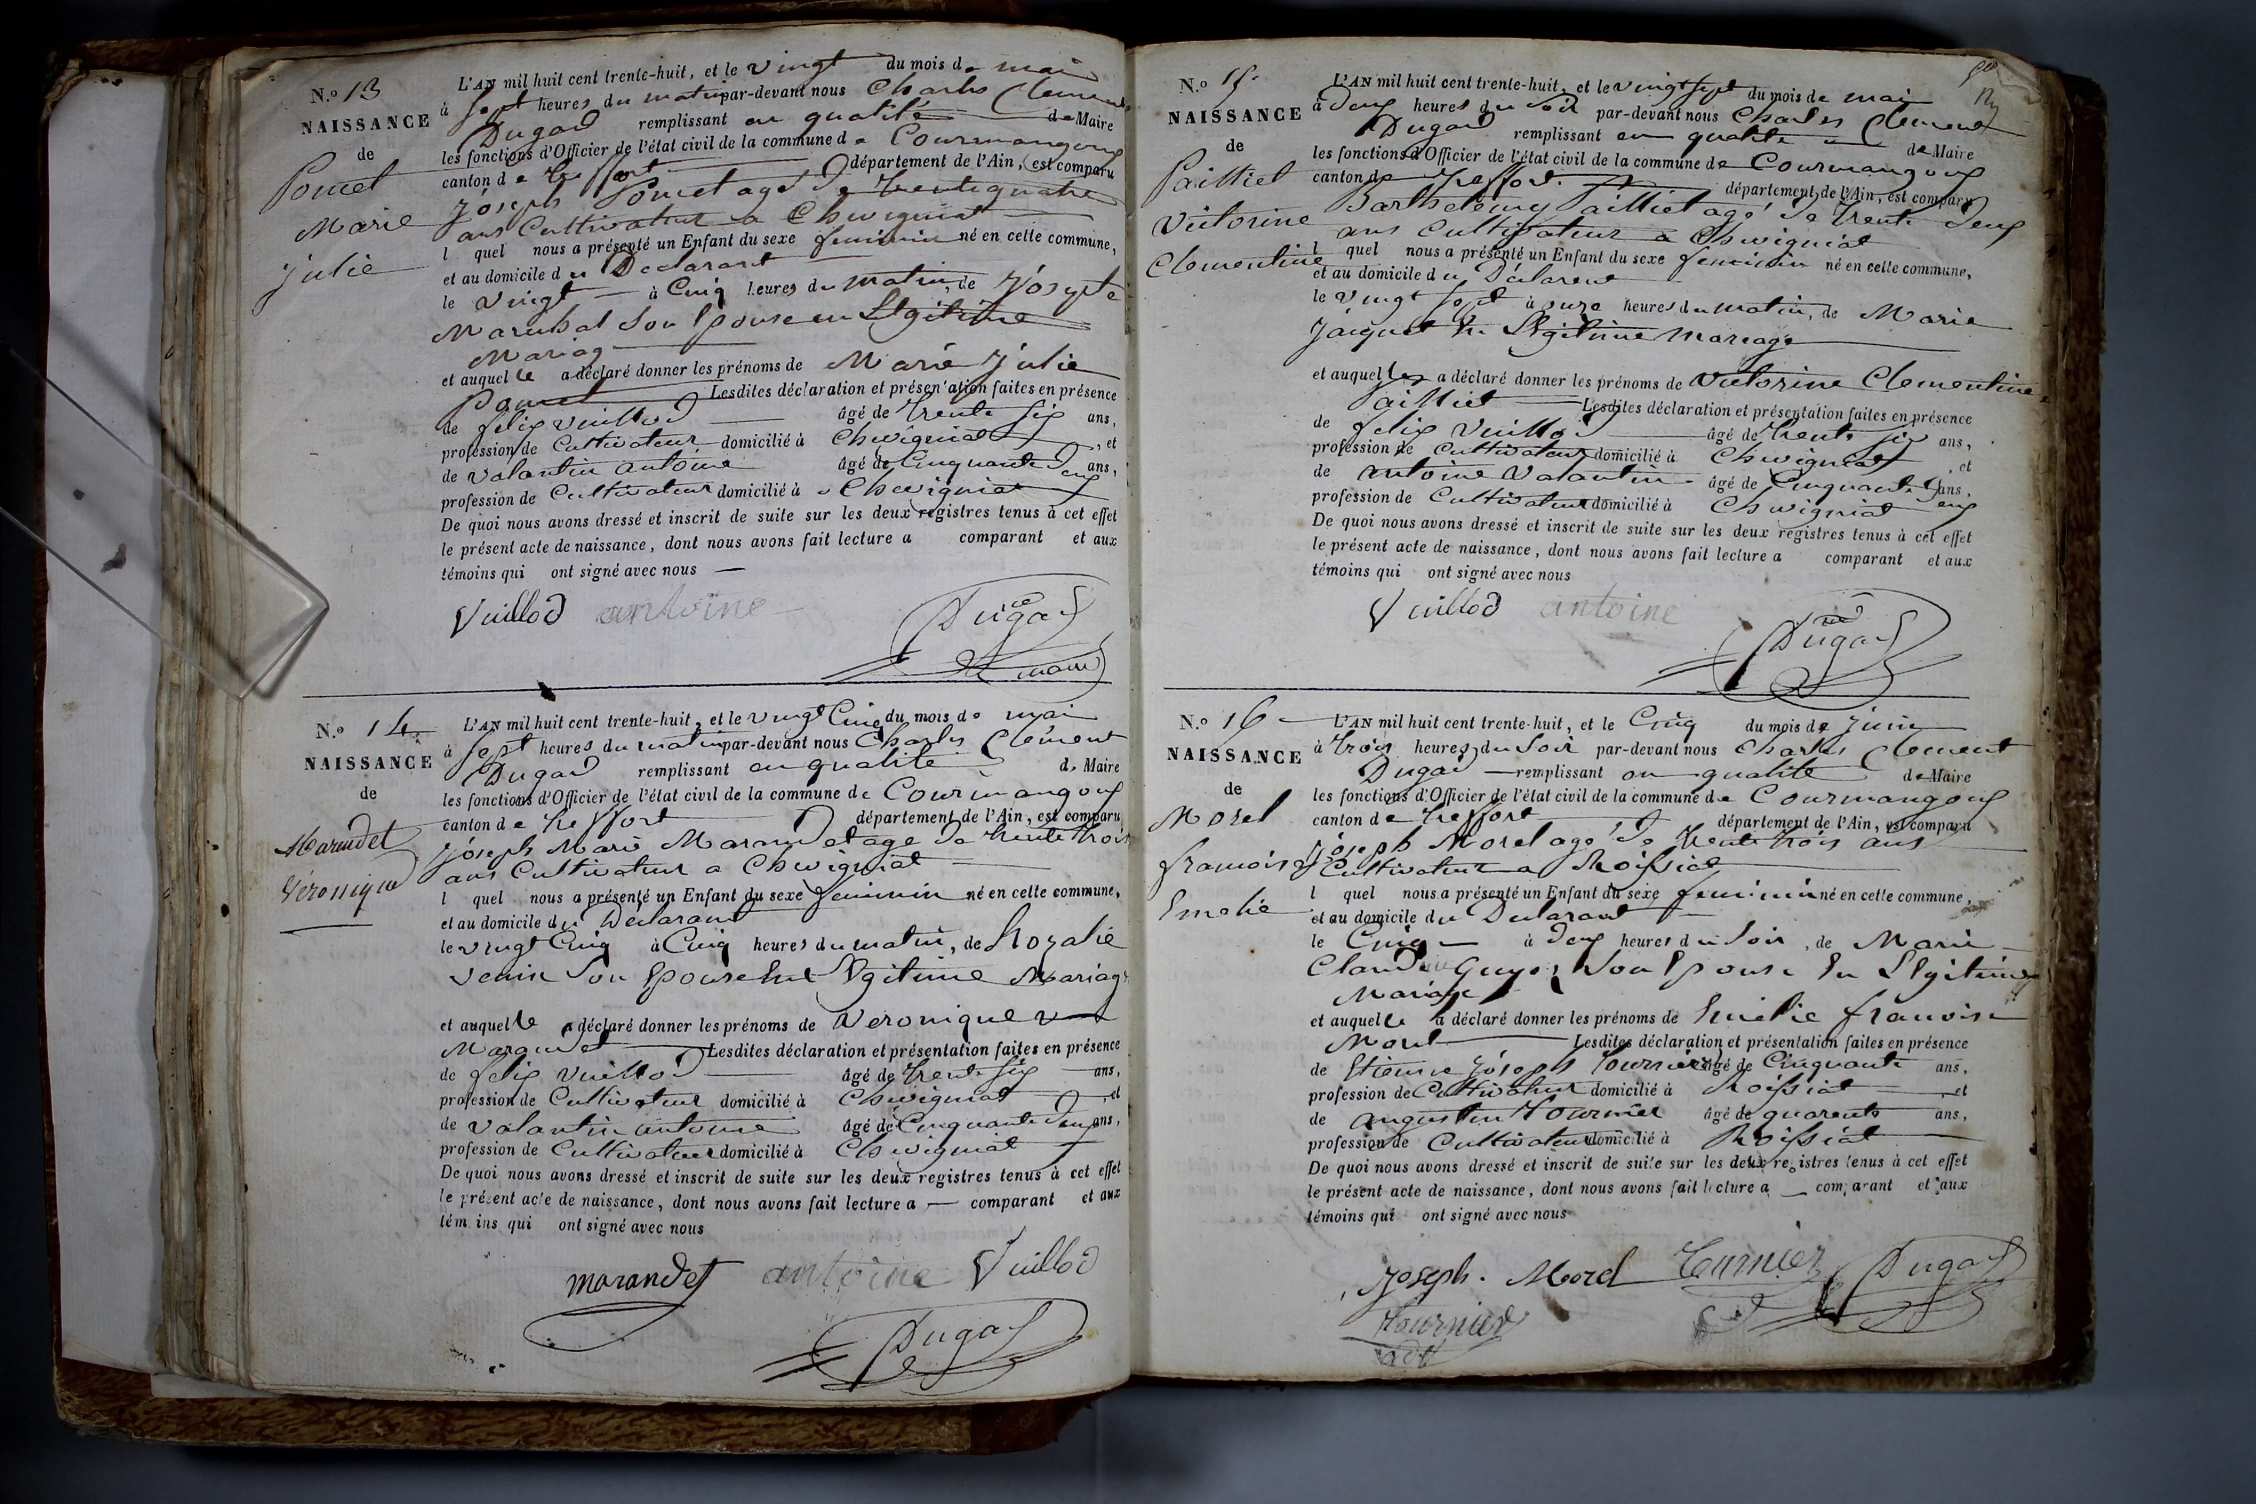 N.º 13
NAISSANCE
de
Poncet
Marie
Julie
L'AN mil huit cent trente-huit, et le vingt du mois de mai
à sept heures du matin par-devant nous Charles Clement
Dugad remplissant en qualité de Maire
les fonctions d'Officier de l'état civil de la commune de Courmangoux
canton de treffort département de l'Ain, est comparu
Joseph Poncet agé de trentequatre
ans Cultivateur a Chevigniat
l quel nous a présenté un Enfant du sexe feminin né en cette commune,
et au domicile du Declarant
le vingt à Cinq heures du matin, de Josephte
Marechal son Epouse en Légitime
Mariag
et auquel le a déclaré donner les prénoms de Marie Julie
Poncet Lesdites déclaration et présentation faites en présence
de felix vuillod âgé de trente six ans,
profession de Cultivateur domicilié à Chevigniat, et
de valantin antoine âgé de Cinquante deux ans,
profession de Cultivateur domicilié à Chevigniat
De quoi nous avons dressé et inscrit de suite sur les deux registres tenus à cet effet
le présent acte de naissance, dont nous avons fait lecture a comparant et aux
témoins qui ont signé avec nous
Vuillod antoine Dugad
maire
N.º 14
NAISSANCE
de
Marandet
Véronique
L'AN mil huit cent trente-huit, et le vingt Cinq du mois de mai
à sept heures du matin par-devant nous Charles Clément
Dugad remplissant en qualité de Maire
les fonctions d'Officier de l'état civil de la commune de Courmangoux
canton de treffort département de l'Ain, est comparu
Joseph Marie Marandet age de trente trois
ans Cultivateur a Chevigniat
l quel nous a présenté un Enfant du sexe feminin né en cette commune,
et au domicile du Declarant
le vingt Cinq à Cinq heures du matin, de Rozalie
venin son Epouse En Légitime Mariage
et auquel le a déclaré donner les prénoms de Veronique
Marandet Lesdites déclaration et présentation faites en présence
de felix vuillod âgé de trente six ans,
profession de Cultivateur domicilié à Chevigniat, et
de valantin antoine âgé de Cinquante deux ans,
profession de Cultivateur domicilié à Chevigniat
De quoi nous avons dressé et inscrit de suite sur les deux registres tenus à cet effet
le présent acte de naissance, dont nous avons fait lecture a comparant et aux
témoins qui ont signé avec nous
marandet antoine Vuillod
Dugad
N.º 15
NAISSANCE
de
Pailliet
Victorine
Clementine
L'AN mil huit cent trente-huit, et le vingt sept du mois de mai
à deux heures du soir par-devant nous Charles Clement
Dugad remplissant en qualité de Maire
les fonctions d'Officier de l'état civil de la commune de Courmangoux
canton de treffort département de l'Ain, est comparu
Barthelemy Pailliet agé de trente deux
ans cultivateur a Chevigniat
l quel nous a présenté un Enfant du sexe feminin né en cette commune,
et au domicile du Déclarent
le vingt sept à onze heures du matin, de Marie
Jacquet En Légitime Mariage
et auquel les a déclaré donner les prénoms de Victorine Clementine
Pailliet Lesdites déclaration et présentation faites en présence
de felix Vuillod âgé de trente six ans,
profession de Cultivateur domicilié à Chevigniat, et
de antoine valantin âgé de Cinquante deux ans,
profession de Cultivateur domicilié à Chevigniat
De quoi nous avons dressé et inscrit de suite sur les deux registres tenus à cet effet
le présent acte de naissance, dont nous avons fait lecture a comparant et aux
témoins qui ont signé avec nous
Vuillod antoine Dugad
N.º 16
NAISSANCE
de
Morel
françoise
Emelie
L'AN mil huit cent trente-huit, et le Cinq du mois de juin
à trois heures du soir par-devant nous Charles Clement
Dugad remplissant en qualité de Maire
les fonctions d'Officier de l'état civil de la commune de Courmangoux
canton de treffort département de l'Ain, est comparu
Joseph Morel agé de trente trois ans
Cultivateur a Roissiat
l quel nous a présenté un Enfant du sexe feminin né en cette commune,
et au domicile du Declarant
le Cinq à deux heures du soir, de Marie
Claudine Guyot son Epouse En Légitime
Mariage
et auquel le a déclaré donner les prénoms de Emelie françoise
Morel Lesdites déclaration et présentation faites en présence
de Etienne Joseph tournier âgé de Cinquante ans,
profession de Cultivateur domicilié à Roissiat, et
de augustin tournier âgé de quarente ans,
profession de Cultivateur domicilié à Roissiat
De quoi nous avons dressé et inscrit de suite sur les deux registres tenus à cet effet
le présent acte de naissance, dont nous avons fait lecture a comparant et aux
témoins qui ont signé avec nous
Joseph. Morel Tournier Dugad
tournier